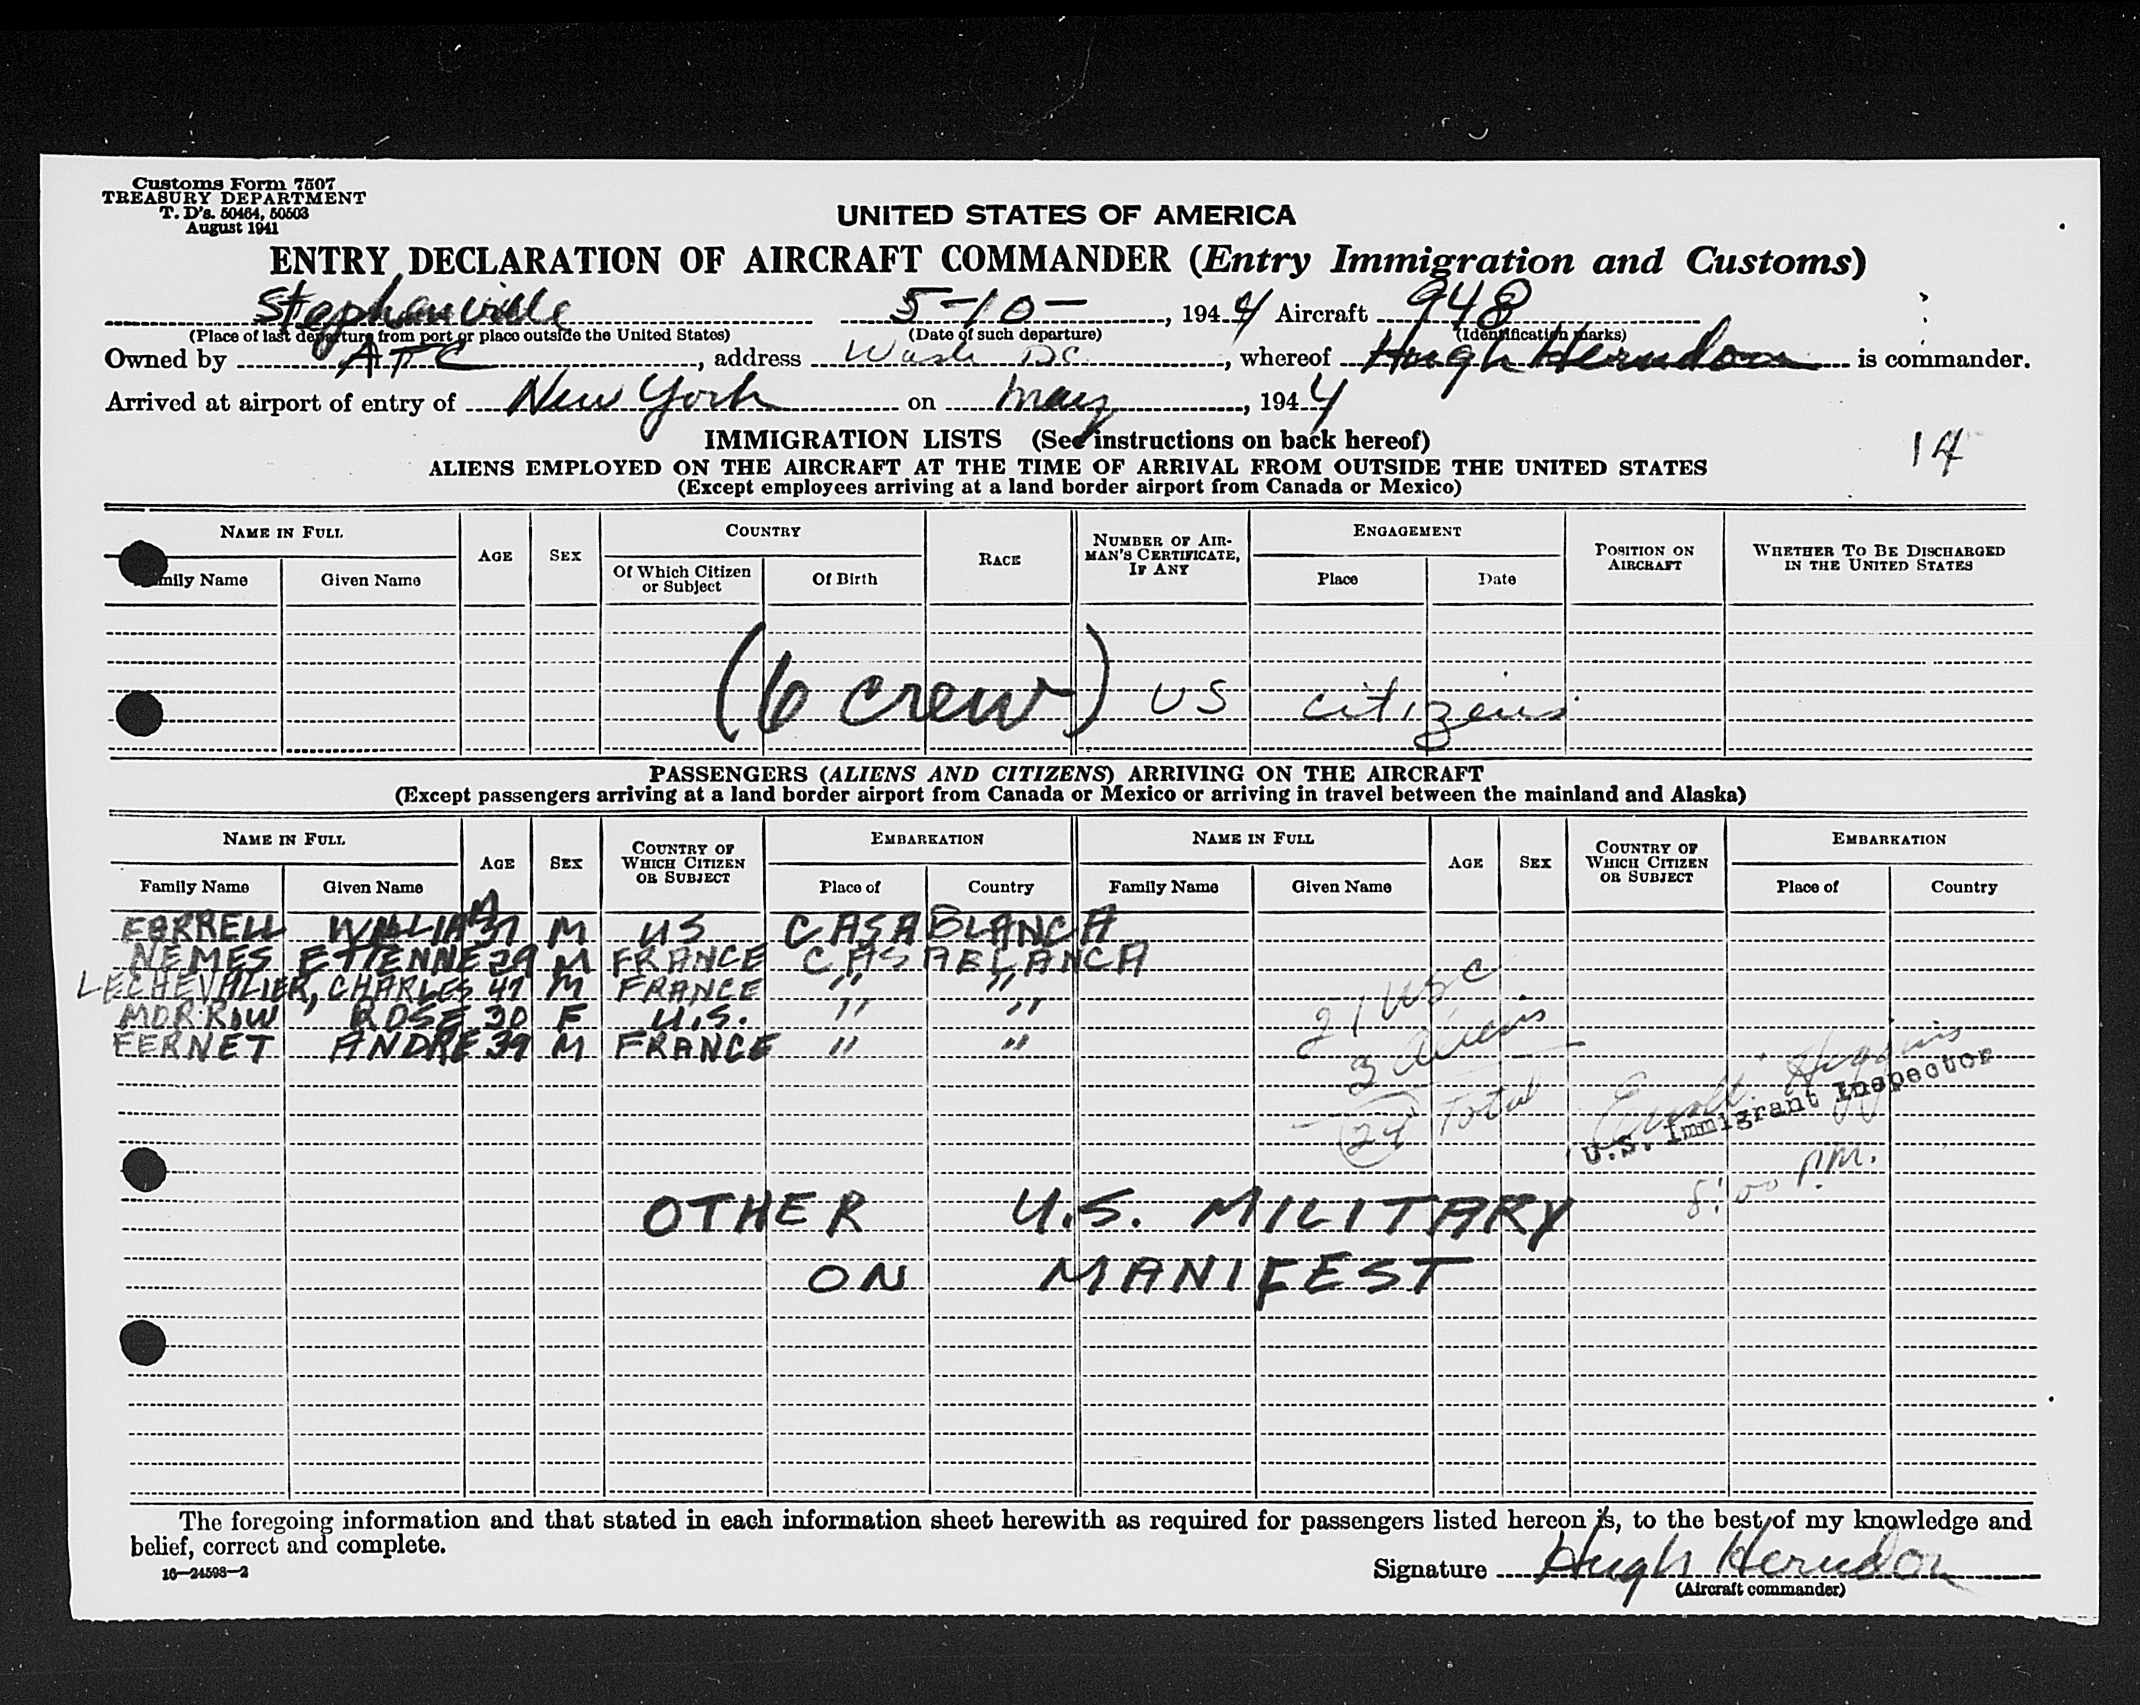 Customs Form 7507
TREASURY DEPARTMENT
T. D's. 50464, 50503
August 1941
UNITED STATES OF AMERICA
ENTRY DECLARATION OF AIRCRAFT COMMANDER (Entry Immigration and Customs)
Stephenville 5-10- , 1944 Aircraft 948
(Place of last departure from port or place outside the United States) (Date of such departure) (Identification marks)
Owned by ATC , address Wash DC , whereof Hugh Herndon is commander.
Arrived at airport of entry of New York on May , 1944
IMMIGRATION LISTS (See instructions on back hereof)
14
ALIENS EMPLOYED ON THE AIRCRAFT AT THE TIME OF ARRIVAL FROM OUTSIDE THE UNITED STATES
(Except employees arriving at a land border airport from Canada or Mexico)
NAME IN FULL AGE SEX COUNTRY RACE NUMBER OF AIRMAN'S CERTIFICATE, IF ANY ENGAGEMENT POSITION ON AIRCRAFT WHETHER TO BE DISCHARGED IN THE UNITED STATES
Family Name Given Name Of Which Citizen or Subject Of Birth Place Date
(6 crew) US citizens
PASSENGERS (ALIENS AND CITIZENS) ARRIVING ON THE AIRCRAFT
(Except passengers arriving at a land border airport from Canada or Mexico or arriving in travel between the mainland and Alaska)
NAME IN FULL AGE SEX COUNTRY OF WHICH CITIZEN OR SUBJECT EMBARKATION NAME IN FULL AGE SEX COUNTRY OF WHICH CITIZEN OR SUBJECT EMBARKATION
Family Name Given Name Place of Country Family Name Given Name Place of Country
FARRELL WILLIAM 37 M US CASABLANCA
NEMES ETIENNE 29 M FRANCE CASABLANCA
LECHEVALIER, CHARLES 47 M FRANCE " "
MORROW ROSE 30 F U.S. " "
FERNET ANDRE 39 M FRANCE " "
21 USC
3 Aliens
24 Total
Higgins
U.S. Immigrant Inspector
8:00 P.M.
OTHER U.S. MILITARY
ON MANIFEST
The foregoing information and that stated in each information sheet herewith as required for passengers listed hereon is, to the best of my knowledge and
belief, correct and complete.
16—24598-2
Signature Hugh Herndon
(Aircraft commander)